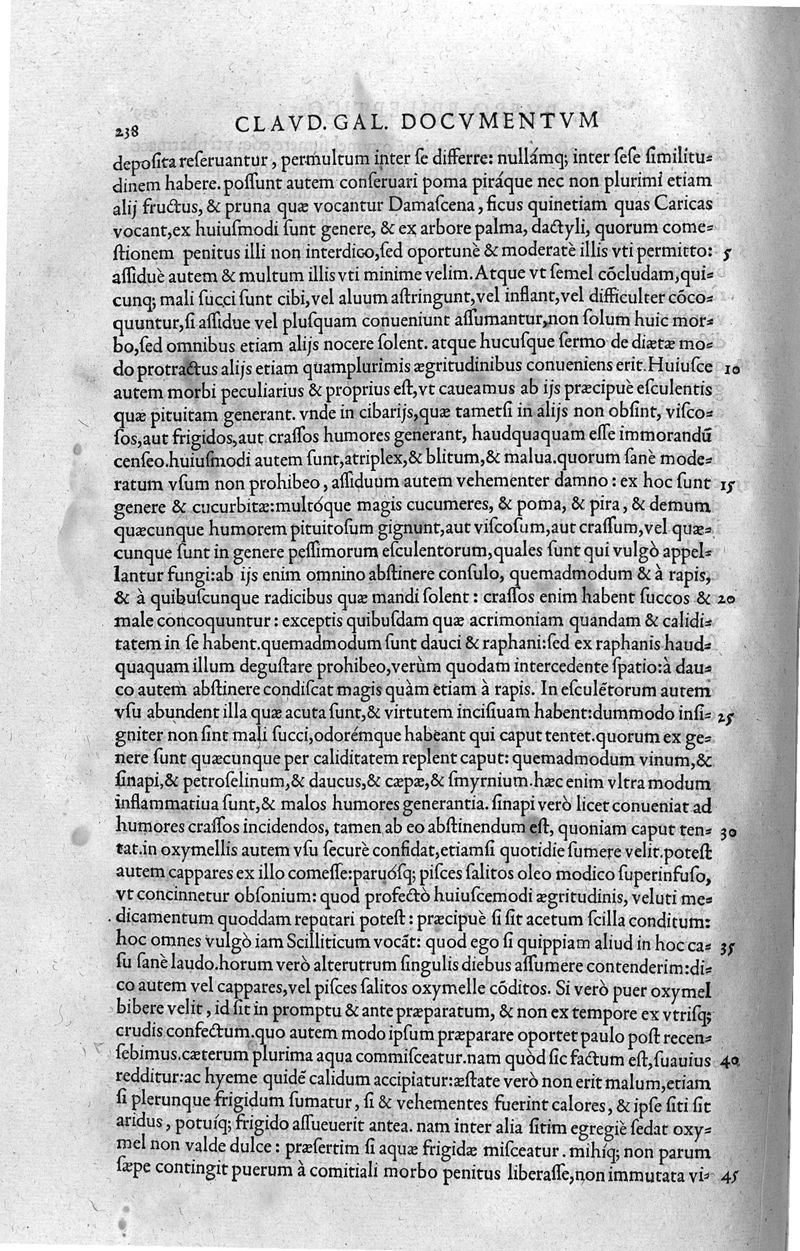 238 CLAVD. GAL. DOCVMENTVM
deposita reseruantur, permultum inter se differre: nullámq; inter sese similitu-
dinem habere. possunt autem conseruari poma piráque nec non plurimi etiam
alij fructus, & pruna quæ vocantur Damascena, ficus quinetiam quas Caricas
vocant, ex huiusmodi sunt genere, & ex arbore palma, dactyli, quorum come-
stionem penitus illi non interdico, sed oportunè & moderatè illis vti permitto: 5
assiduè autem & multum illis vti minime velim. Atque vt semel cōcludam, qui-
cunq; mali succi sunt cibi, vel aluum astringunt, vel inflant, vel difficulter cōco-
quuntur, si assidue vel plusquam conueniunt assumantur, non solum huic mor-
bo, sed omnibus etiam alijs nocere solent. atque hucusque sermo de diætæ mo-
do protractus alijs etiam quamplurimis ægritudinibus conueniens erit. Huiusce 10
autem morbi peculiarius & proprius est, vt caueamus ab ijs præcipuè esculentis
quæ pituitam generant. vnde in cibarijs, quæ tametsi in alijs non obsint, visco-
sos, aut frigidos, aut crassos humores generant, haudquaquam esse immorandū
censeo. huiusmodi autem sunt, atriplex, & blitum, & malua. quorum sanè mode-
ratum vsum non prohibeo, assiduum autem vehementer damno: ex hoc sunt 15
genere & cucurbitæ: multóque magis cucumeres, & poma, & pira, & demum
quæcunque humorem pituitosum gignunt, aut viscosum, aut crassum, vel quæ-
cunque sunt in genere pessimorum esculentorum, quales sunt qui vulgò appel-
lantur fungi: ab ijs enim omnino abstinere consulo, quemadmodum & à rapis,
& à quibuscunque radicibus quæ mandi solent: crassos enim habent succos & 20
male concoquuntur: exceptis quibusdam quæ acrimoniam quandam & calidi-
tatem in se habent. quemadmodum sunt dauci & raphani: sed ex raphanis haud-
quaquam illum degustare prohibeo, verùm quodam intercedente spatio: à dau-
co autem abstinere condiscat magis quàm etiam à rapis. In esculētorum autem
vsu abundent illa quæ acuta sunt, & virtutem incisiuam habent: dummodo insi- 25
gniter non sint mali succi, odorémque habeant qui caput tentet. quorum ex ge-
nere sunt quæcunque per caliditatem replent caput: quemadmodum vinum, &
sinapi, & petroselinum, & daucus, & cæpæ, & smyrnium. hæc enim vltra modum
inflammatiua sunt, & malos humores generantia. sinapi verò licet conueniat ad
humores crassos incidendos, tamen ab eo abstinendum est, quoniam caput ten- 30
tat. in oxymellis autem vsu securè confidat, etiamsi quotidie sumere velit. potest
autem cappares ex illo comesse: paruósq; pisces salitos oleo modico superinfuso,
vt concinnetur obsonium: quod profectò huiuscemodi ægritudinis, veluti me-
dicamentum quoddam reputari potest: præcipuè si sit acetum scilla conditum:
hoc omnes vulgò iam Scilliticum vocāt: quod ego si quippiam aliud in hoc ca- 35
su sanè laudo. horum verò alterutrum singulis diebus assumere contenderim: di-
co autem vel cappares, vel pisces salitos oxymelle cōditos. Si verò puer oxymel
bibere velit, id sit in promptu & ante præparatum, & non ex tempore ex vtrisq;
crudis confectum. quo autem modo ipsum præparare oportet paulo post recen-
sebimus. cæterum plurima aqua commisceatur. nam quòd sic factum est, suauius 40
redditur: ac hyeme quidē calidum accipiatur: æstate verò non erit malum, etiam
si plerunque frigidum sumatur, si & vehementes fuerint calores, & ipse siti sit
aridus, potuíq; frigido assueuerit antea. nam inter alia sitim egregiè sedat oxy-
mel non valde dulce: præsertim si aquæ frigidæ misceatur. mihíq; non parum
sæpe contingit puerum à comitiali morbo penitus liberasse, non immutata vi- 45